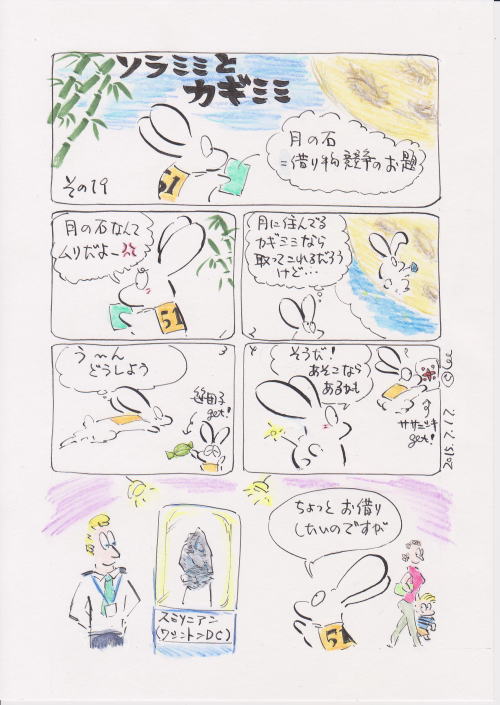 ソラミミと
カギミミ
その19
月の石
=借り物競争のお題
51
月の石なんて
ムリだよー
51
月に住んでる
カギミミなら
取ってこれるだろう
けど…
2
う〜ん
どうしよう
3
笹団子
get!
4
そうだ!
あそこなら
あるかも
ササダンゴ
get!
2015.7.17. ©Lee
スミソニアン
(ワシントンDC)
ちょっとお借り
したいのですが
51